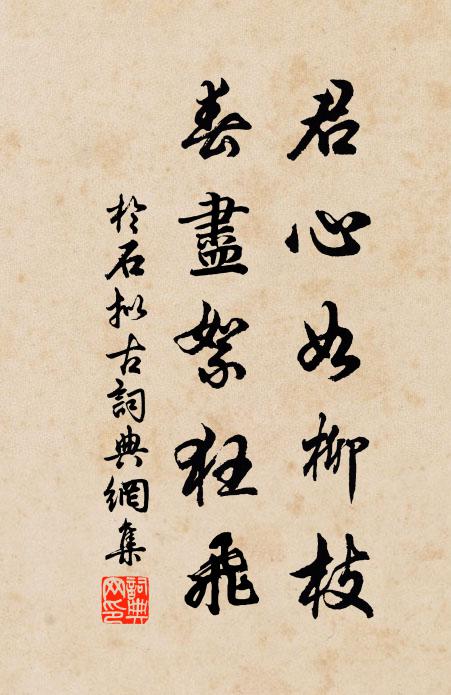 君心如柳枝
春盡絮狂飛
於石拟古詞典網集
詞典
网印